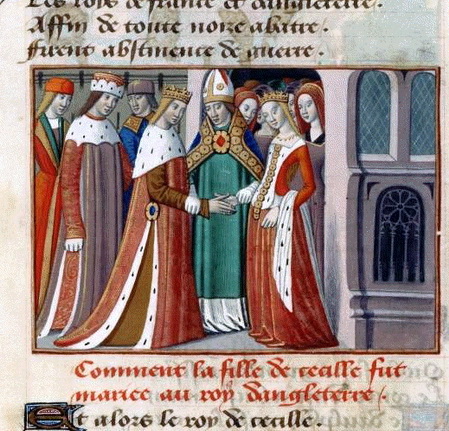 Les roys de france et dangleterre.
Affin de toute noize abatre.
Firent abstinence de guerre.
Comment la fille de cecille fut
mariee au roy dangleterre.
Et alors le roy de cecille.